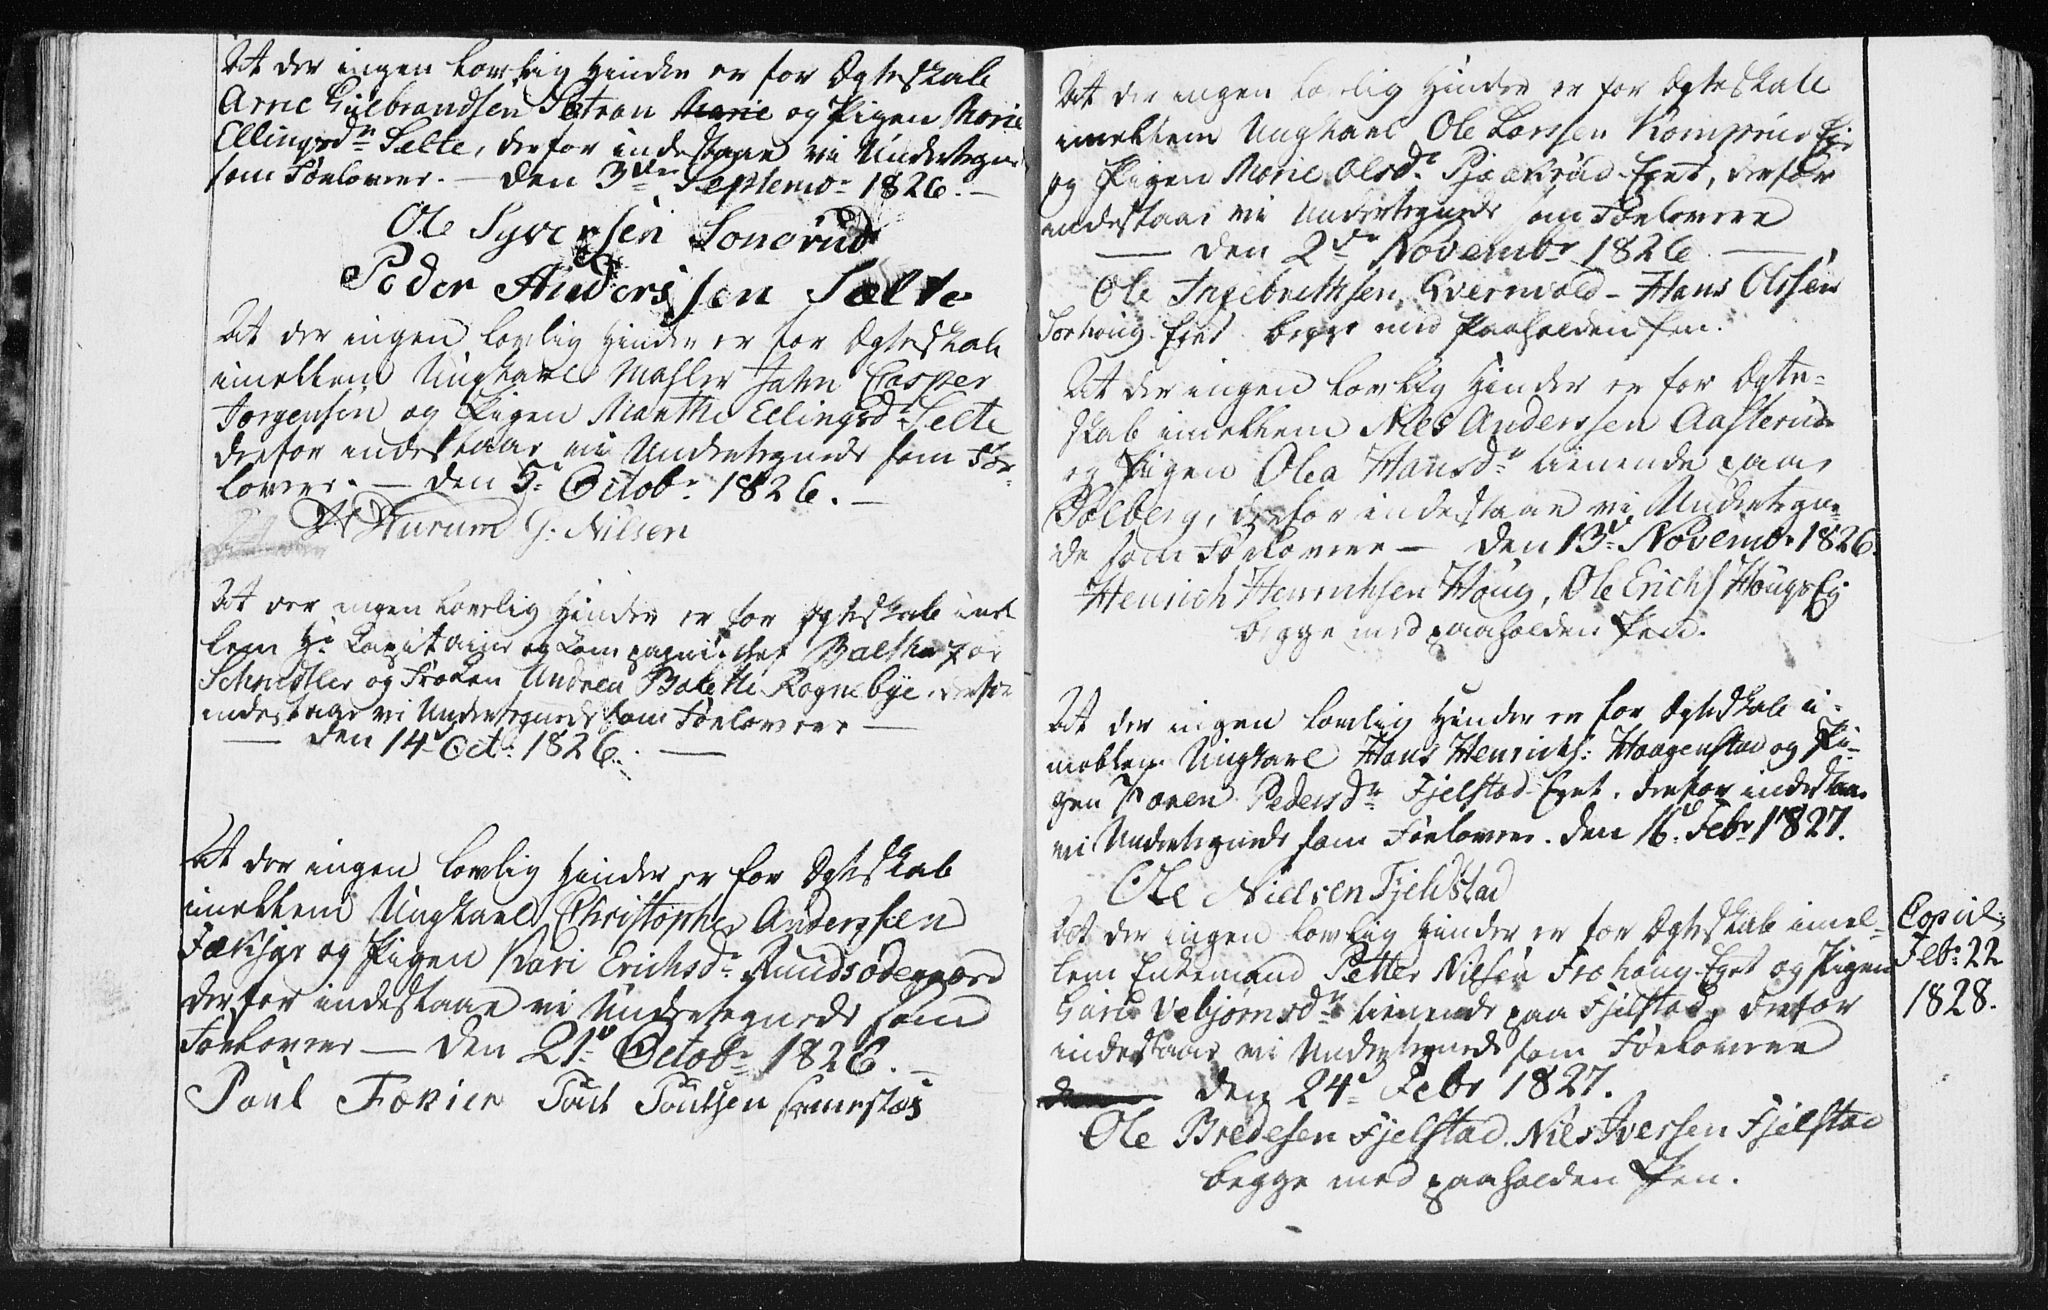 At der ingen lovlig Hinder er for Ægteskab
Arne Gulbrandsen Sætran Marie og Pigen Marie
Ellingsdr Selte, derfor indestaae vi Undertegnede
som Forlovere. — Den 3de Septembr 1826. —
Ole Syversen Sonerud
Peder Anderssen Sælte
At der ingen lovlig Hinder er for Ægteskab
imellem Ungkarl Mahler Jahn Casper
Jørgensen og Pigen Marthe Ellingsdr Selte
derfor indestaae vi Undertegnede som For-
lovere. — Den 5te Octobr 1826. —
H Hurum G: Nilsen
At der ingen lovlig Hinder er for Ægteskab imel
lem Hr Capitaine og Compagnie chef Balthazar
Schnitler og Frøken Andrea Bolette Rognebye. derfor
indestaae vi Undertegnede som Forlovere —
— Den 14d Oct: 1826. —
At der ingen lovlig Hinder er for Ægteskab
imellem Ungkarl Christopher Anderssen
Fæksjær og Pigen Kari Erichsdr Ruudsødegaard
derfor indestaae vi Undertegnede som
Forlovere — Den 21d Octobr 1826. —
Poul Fæxier Poul Poulsen
At der ingen lovlig Hinder er for Ægteskab
imellem Ungkarl Ole Larssen Komprud Ej:
og Pigen Marie Olsdr Pjaakrud Eget, derfor
indestaae vi Undertegnede som Forlovere
— Den 2de Novembr 1826 —
Ole Ingebrethsen Gvernvold - Hans Olssen
Sorhoug Eget begge med paaholden Pen.
At der ingen lovlig Hinder er for Ægte-
skab imellem Niels Anderssen Aasterud
og Pigen Olea Hansdr tienende paa
Solberg, derfor indestaae vi Undertegne-
de som Forlovere — Den 13d Novembr 1826.
Henrich Henrichsen Houg, Ole Erichs Hougs Ej
begge med paaholden Pen.
At der ingen lovlig Hinder er for Ægteskab i-
mellem Ungkarl Hans Henrichs: Haagenstad og Pi-
gen Maren Pedersdr Fjelstad Eget. derfor indestaae
vi Undertegnede som Forlovere. Den 16d Febr 1827.
Ole Nielsen Fjeldstad
At der ingen lovlig Hinder er for Ægteskab imel-
lem Enkemand Petter Nilsen Frohoug Eget og Pigen
Guri Vebjørnsdr tienende paa Fjelstad, derfor
indestaae vi Undertegnede som Forlovere
Den 24d Febr 1827.
Ole Bredesen Fjelstad. Niels Iversen Fjelstad
begge med paaholden Pen.
Copul:
Feb: 22
1828.